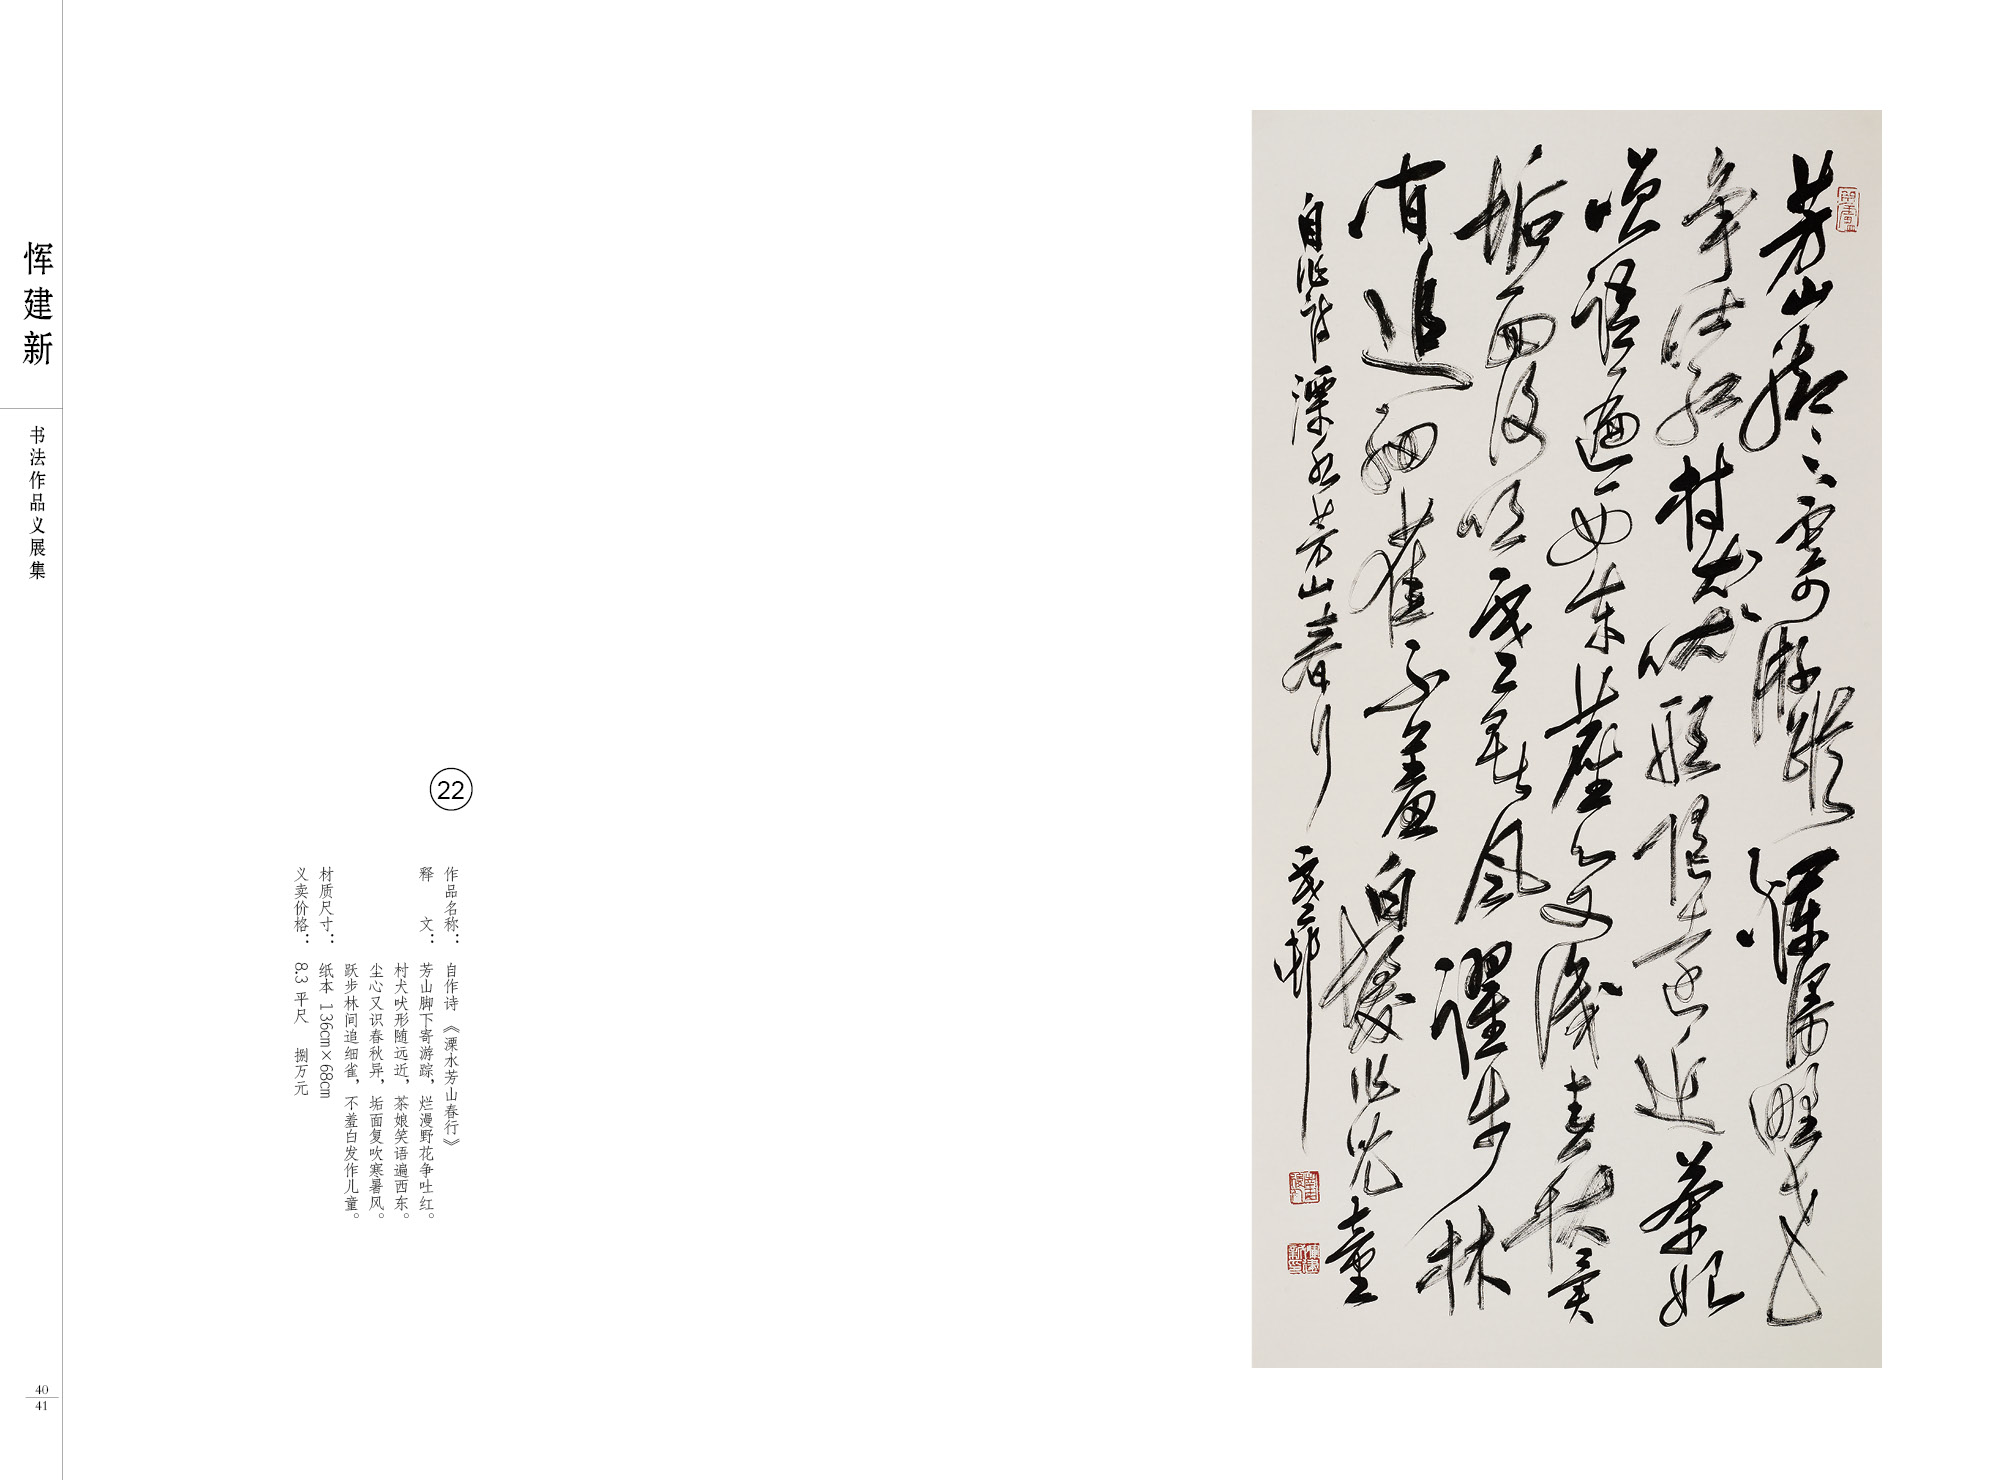 恽建新
书法作品义展集
40
41
22
作品名称： 自作诗 《溧水芳山春行》
释 文： 芳山脚下寄游踪，烂漫野花争吐红。
村犬吠形随远近，茶娘笑语遍西东。
尘心又识春秋异，垢面复吹寒暑风。
跃步林间追细雀，不羞白发作儿童。
材质尺寸： 纸本 136cm×68cm
义卖价格： 8.3 平尺 捌万元
芳山脚下寄游踪烂漫野花
争吐红村犬吠形随远近茶娘
笑语遍西东尘心又识春秋异
垢面复吹寒暑风跃步林
间追细雀不羞白发作儿童
自作诗溧水芳山春行